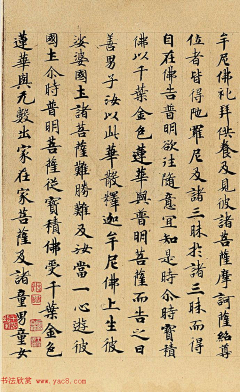 牟尼佛礼拜供養及見彼諸菩薩摩訶薩紹尊
位者皆得陁羅尼及諸三昧於諸三昧而得
自在佛告普明欲往随意宜知是時尒時寶積
佛以千葉金色蓮華與普明菩薩而告之曰
善男子汝以此華散釋迦牟尼佛上生彼
娑婆國土諸菩薩難勝難及汝當一心遊彼
國土尒時普明菩薩從寶積佛受千葉金色
蓮華與无數出家在家菩薩及諸童男童女
书法欣赏
www.yac8.com